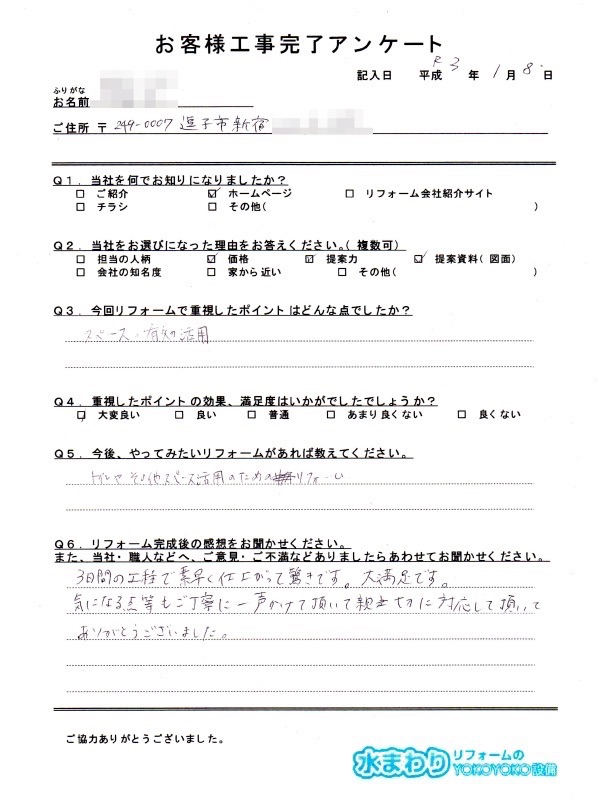 お客様工事完了アンケート
記入日 平成 R3 年 1 月 8 日
ふりがな
お名前
ご住所 〒 249-0007 逗子市新宿
Q1. 当社を何でお知りになりましたか?
□ ご紹介 ☑ ホームページ □ リフォーム会社紹介サイト
□ チラシ □ その他( )
Q2. 当社をお選びになった理由をお答えください。(複数可)
□ 担当の人柄 ☑ 価格 ☑ 提案力 ☑ 提案資料(図面)
□ 会社の知名度 □ 家から近い □ その他( )
Q3. 今回リフォームで重視したポイントはどんな点でしたか?
スペース・有効活用
Q4. 重視したポイントの効果、満足度はいかがでしたでしょうか?
☑ 大変良い □ 良い □ 普通 □ あまり良くない □ 良くない
Q5. 今後、やってみたいリフォームがあれば教えてください。
その他スペース活用のための
Q6. リフォーム完成後の感想をお聞かせください。
また、当社・職人などへ、ご意見・ご不満などありましたらあわせてお聞かせください。
3日間の工程で素早く仕上がって驚きです。大満足です。
気になる点等もご丁寧に一声かけて頂いて親切に対応して頂いて
ありがとうございました。
ご協力ありがとうございました。
水まわり リフォームの YOKOYOKO設備